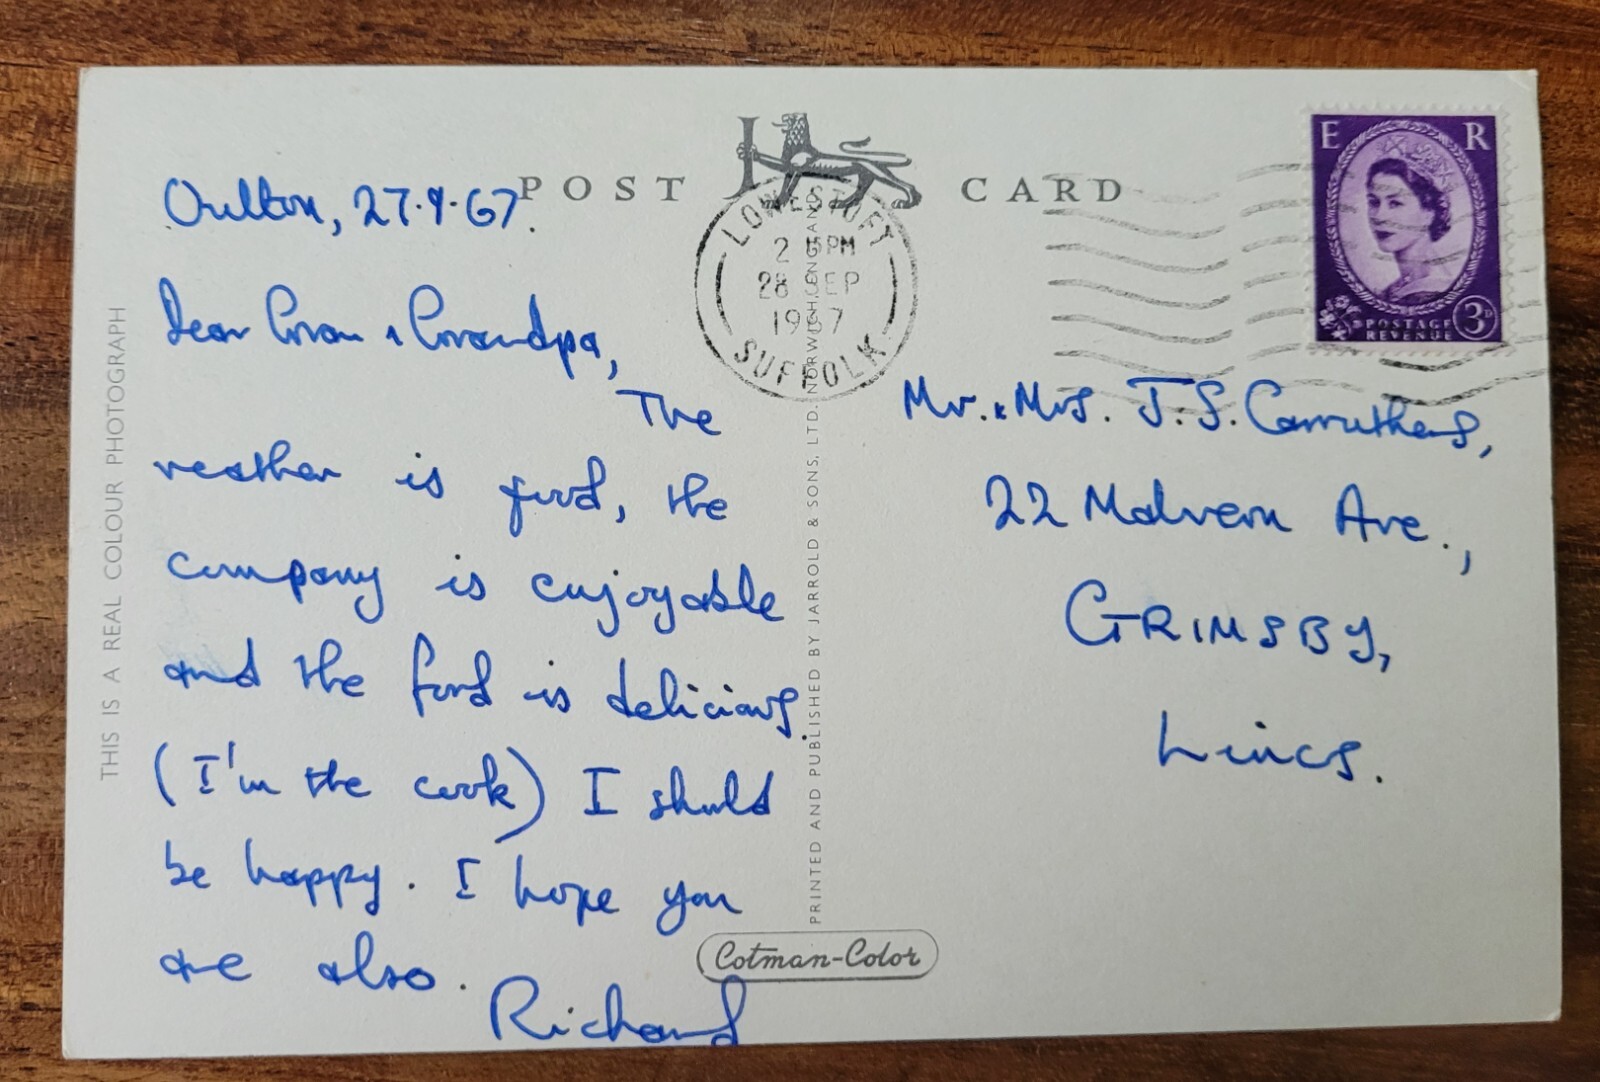 POST CARD
Oulton, 27.9.67.
Dear Gran & Grandpa,
The
weather is good, the
company is enjoyable
and the food is delicious.
(I'm the cook) I should
be happy. I hope you
are also.
Richard
LOWESTOFT
2 15PM
28 SEP
1967
SUFFOLK
E R
POSTAGE
REVENUE
3D
Mr. & Mrs. J. S. Carruthers,
22 Malvern Ave.,
GRIMSBY,
Lincs.
THIS IS A REAL COLOUR PHOTOGRAPH
PRINTED AND PUBLISHED BY JARROLD & SONS, LTD. NORWICH, ENGLAND
Cotman-Color